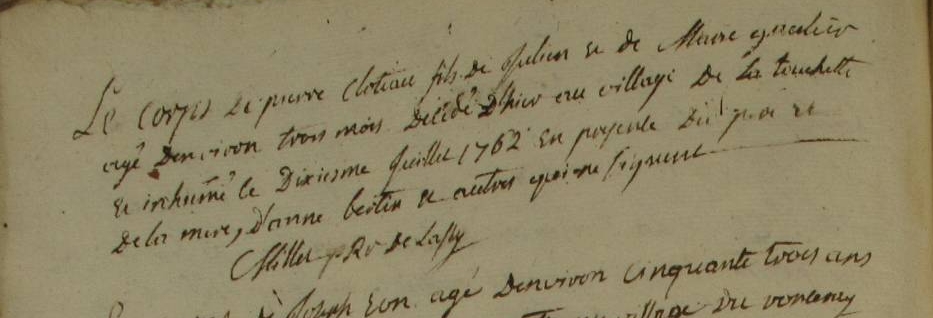 Le corps de pierre Cloteau fils de Julien et de Marie
agé denviron trois mois décédé d'hier au village de la touchette
et inhumé le dixiesme Juillet 1762 en presence du pere et
de la mere, d'anne bertin et autres qui ne signent
Millet de Lassy
de Joseph Eon agé denviron cinquante trois ans
village du